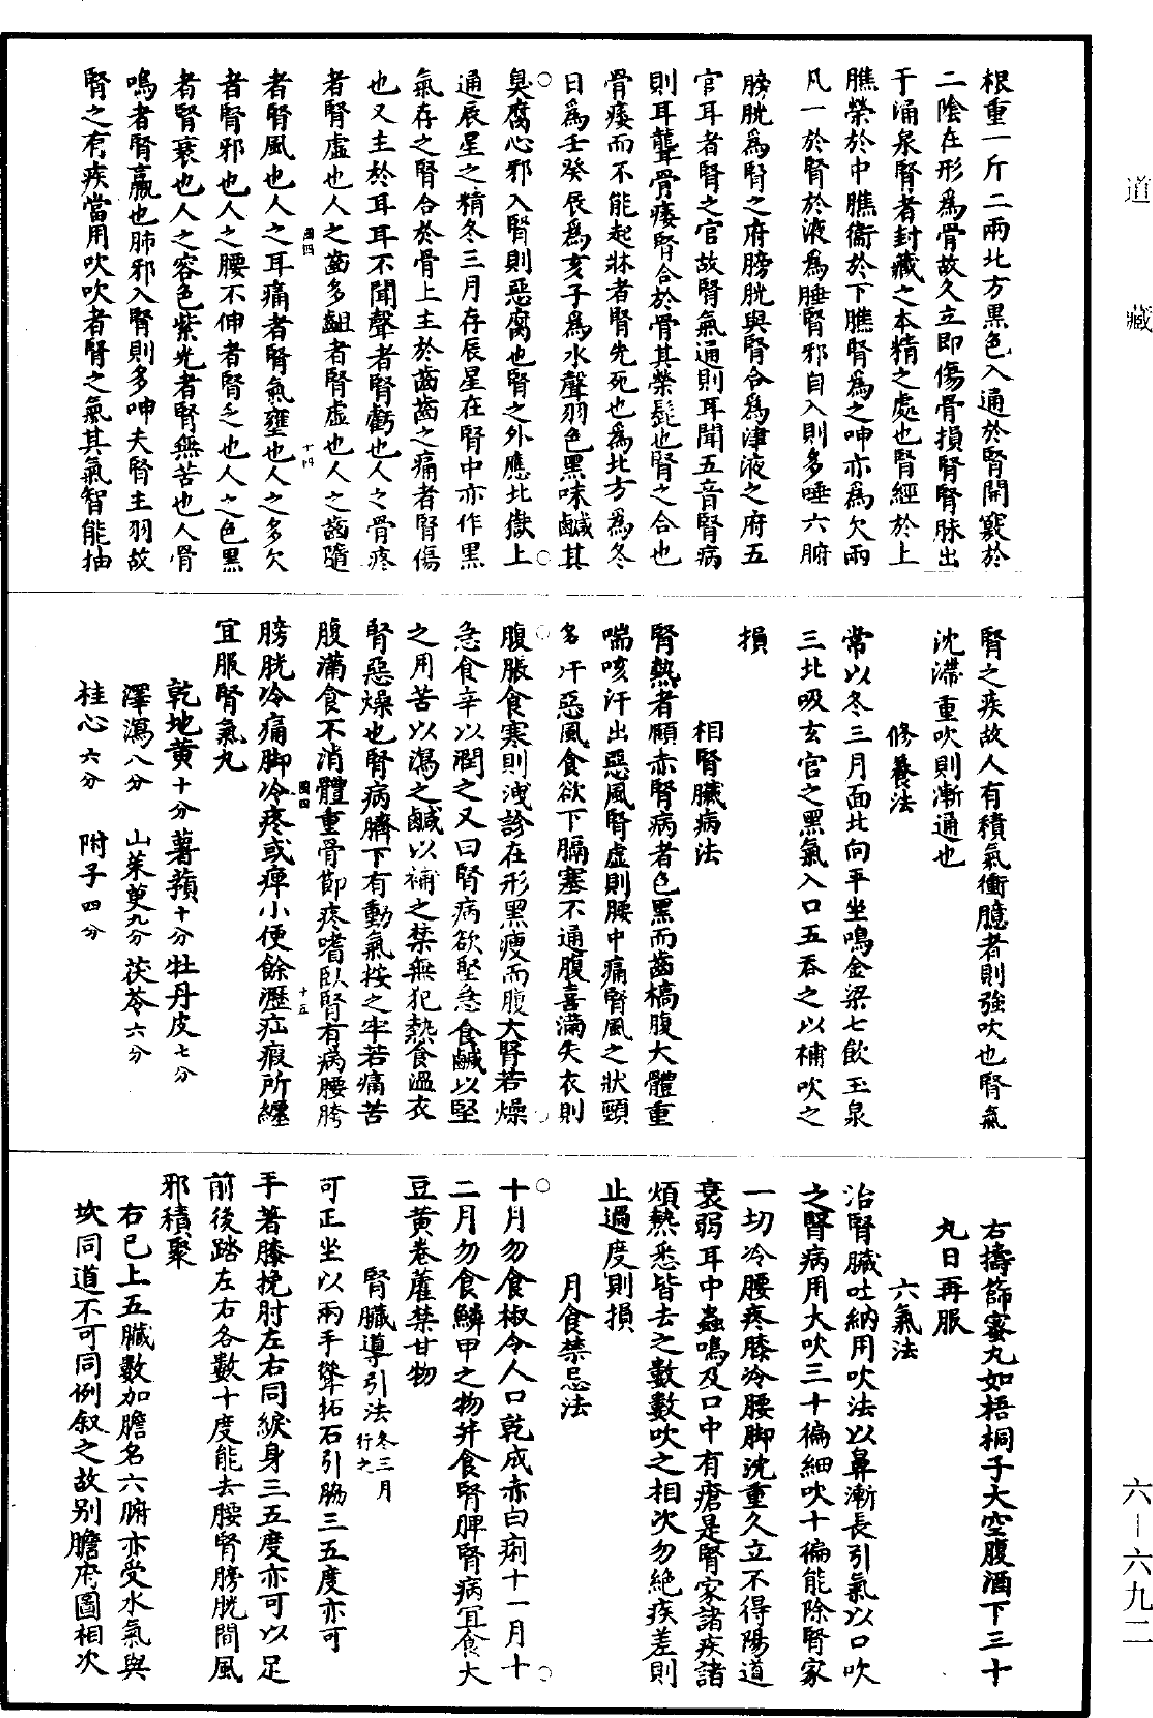 道藏
根重一斤二兩北方黑色入通於腎開竅於
二陰在形爲骨故久立即傷骨損腎腎脉出
于涌泉腎者封藏之本精之處也腎經於上
膲榮於中膲衛於下膲腎爲之呻亦爲欠兩
凡一於腎於液爲唾腎邪自入則多唾六腑
膀胱爲腎之府膀胱與腎合爲津液之府五
官耳者腎之官故腎氣通則耳聞五音腎病
則耳聾骨痿腎合於骨其榮髭也腎之合也
骨痿而不能起牀者腎先死也爲北方爲冬
日爲壬癸辰爲亥子爲水聲羽色黑味鹹其
臭腐心邪入腎則惡腐也腎之外應北嶽上
通辰星之精冬三月存辰星在腎中亦作黑
氣存之腎合於骨上主於齒齒之痛者腎傷
也又主於耳耳不聞聲者腎虧也人之骨疼
者腎虛也人之齒多齟者腎虛也人之齒隨
圖四 十四
者腎風也人之耳痛者腎氣壅也人之多欠
者腎邪也人之腰不伸者腎乏也人之色黑
者腎衰也人之容色紫光者腎無苦也人骨
鳴者腎羸也肺邪入腎則多呻夫腎主羽故
腎之有疾當用吹吹者腎之氣其氣智能抽
腎之疾故人有積氣衝臆者則強吹也腎氣
沈滯重吹則漸通也
修養法
常以冬三月面北向平坐鳴金梁七飲玉泉
三北吸玄宮之黑氣入口五吞之以補吹之
損
相腎臟病法
腎熱者頤赤腎病者色黑而齒槁腹大體重
喘咳汗出惡風腎虛則腰中痛腎風之狀頸
多汗惡風食欲下膈塞不通腹喜滿失衣則
腹脹食寒則洩診在形黑瘦而腹大腎若燥
急食辛以潤之又曰腎病欲堅急食鹹以堅
之用苦以瀉之鹹以補之禁無犯熱食溫衣
腎惡燥也腎病臍下有動氣按之牢若痛苦
腹滿食不消體重骨節疼嗜臥腎有病腰胯
圖四 十五
膀胱冷痛脚冷疼或痺小便餘瀝疝瘕所纏
宜服腎氣丸
乾地黃十分薯蕷十分牡丹皮七分
澤瀉八分 山茱萸九分茯苓六分
桂心六分 附子四分
右擣篩蜜丸如梧桐子大空腹酒下三十
丸日再服
六氣法
治腎臟吐納用吹法以鼻漸長引氣以口吹
之腎病用大吹三十徧細吹十徧能除腎家
一切冷腰疼膝冷腰脚沈重久立不得陽道
衰弱耳中蟲鳴及口中有瘡是腎家諸疾諸
煩熱悉皆去之數數吹之相次勿絕疾差則
止過度則損
月食禁忌法
十月勿食椒令人口乾成赤白痢十一月十
二月勿食鱗甲之物并食腎脾腎病宜食大
豆黃卷藿禁甘物
腎臟導引法冬三月行之
可正坐以兩手聳拓石引脇三五度亦可
手著膝挽肘左右同綟身三五度亦可以足
前後踏左右各數十度能去腰腎膀胱間風
邪積聚
右已上五臟數加膽名六腑亦受水氣與
坎同道不可同例叙之故別膽府圖相次
六－六九二